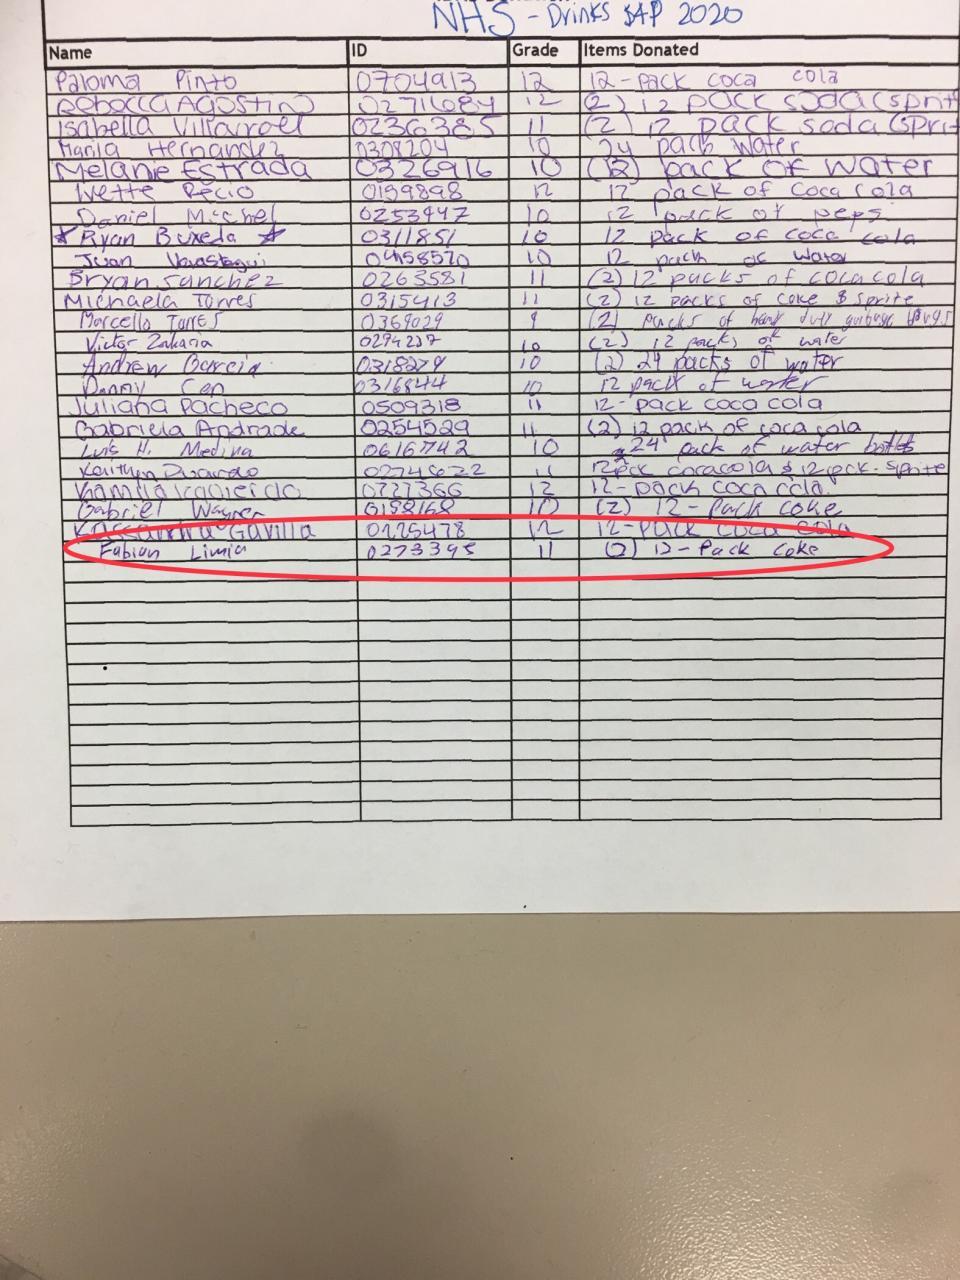 NHS - Drinks SAP 2020
Name ID Grade Items Donated
Paloma Pinto 0704913 12 12-pack coca cola
Rebecca Agostini 0271668y 12 (2) 12 pack soda (sprit
Isabella Villarroel 0236385 11 (2) 12 pack soda (sprit
Maria Hernandez 0308204 10 24 pack water
Melanie Estrada 0326916 10 (12) pack of water
Ivette Recio 0159898 12 12 pack of coca cola
Daniel Michel 0253447 10 12 pack of peps
Ryan Buxeda 0311851 10 12 pack of coca cola
Juan 0458520 10 12 pack of water
Bryan Sanchez 0263581 11 (2) 12 packs of coca cola
Michaela Torres 0315413 11 (2) 12 packs of coke & sprite
Marcello Torres 0369029 9 (2) packs of heavy duty garbage bags
Victor Zakaria 0294237 10 (2) 12 packs of water
Andrew Garcia 0318279 10 (2) 24 packs of water
Danny Cen 0316844 10 12 pack of water
Juliana Pacheco 0509318 11 12-pack coca cola
Gabriela Andrade 0254529 11 (2) 12 pack of coca cola
Luis H. Medina 0616742 10 24 pack of water bottles
Kaithyn 0274622 11 12pck cocacola & 12pck. sprite
Kamila Izquierdo 0727366 12 12-pack coca cola.
Gabriel Wagner 0158168 10 (2) 12-Pack coke
Kassandra Gavilla 0225478 12 12-pack coca cola
Fabian Limia 0273395 11 (2) 12-Pack coke